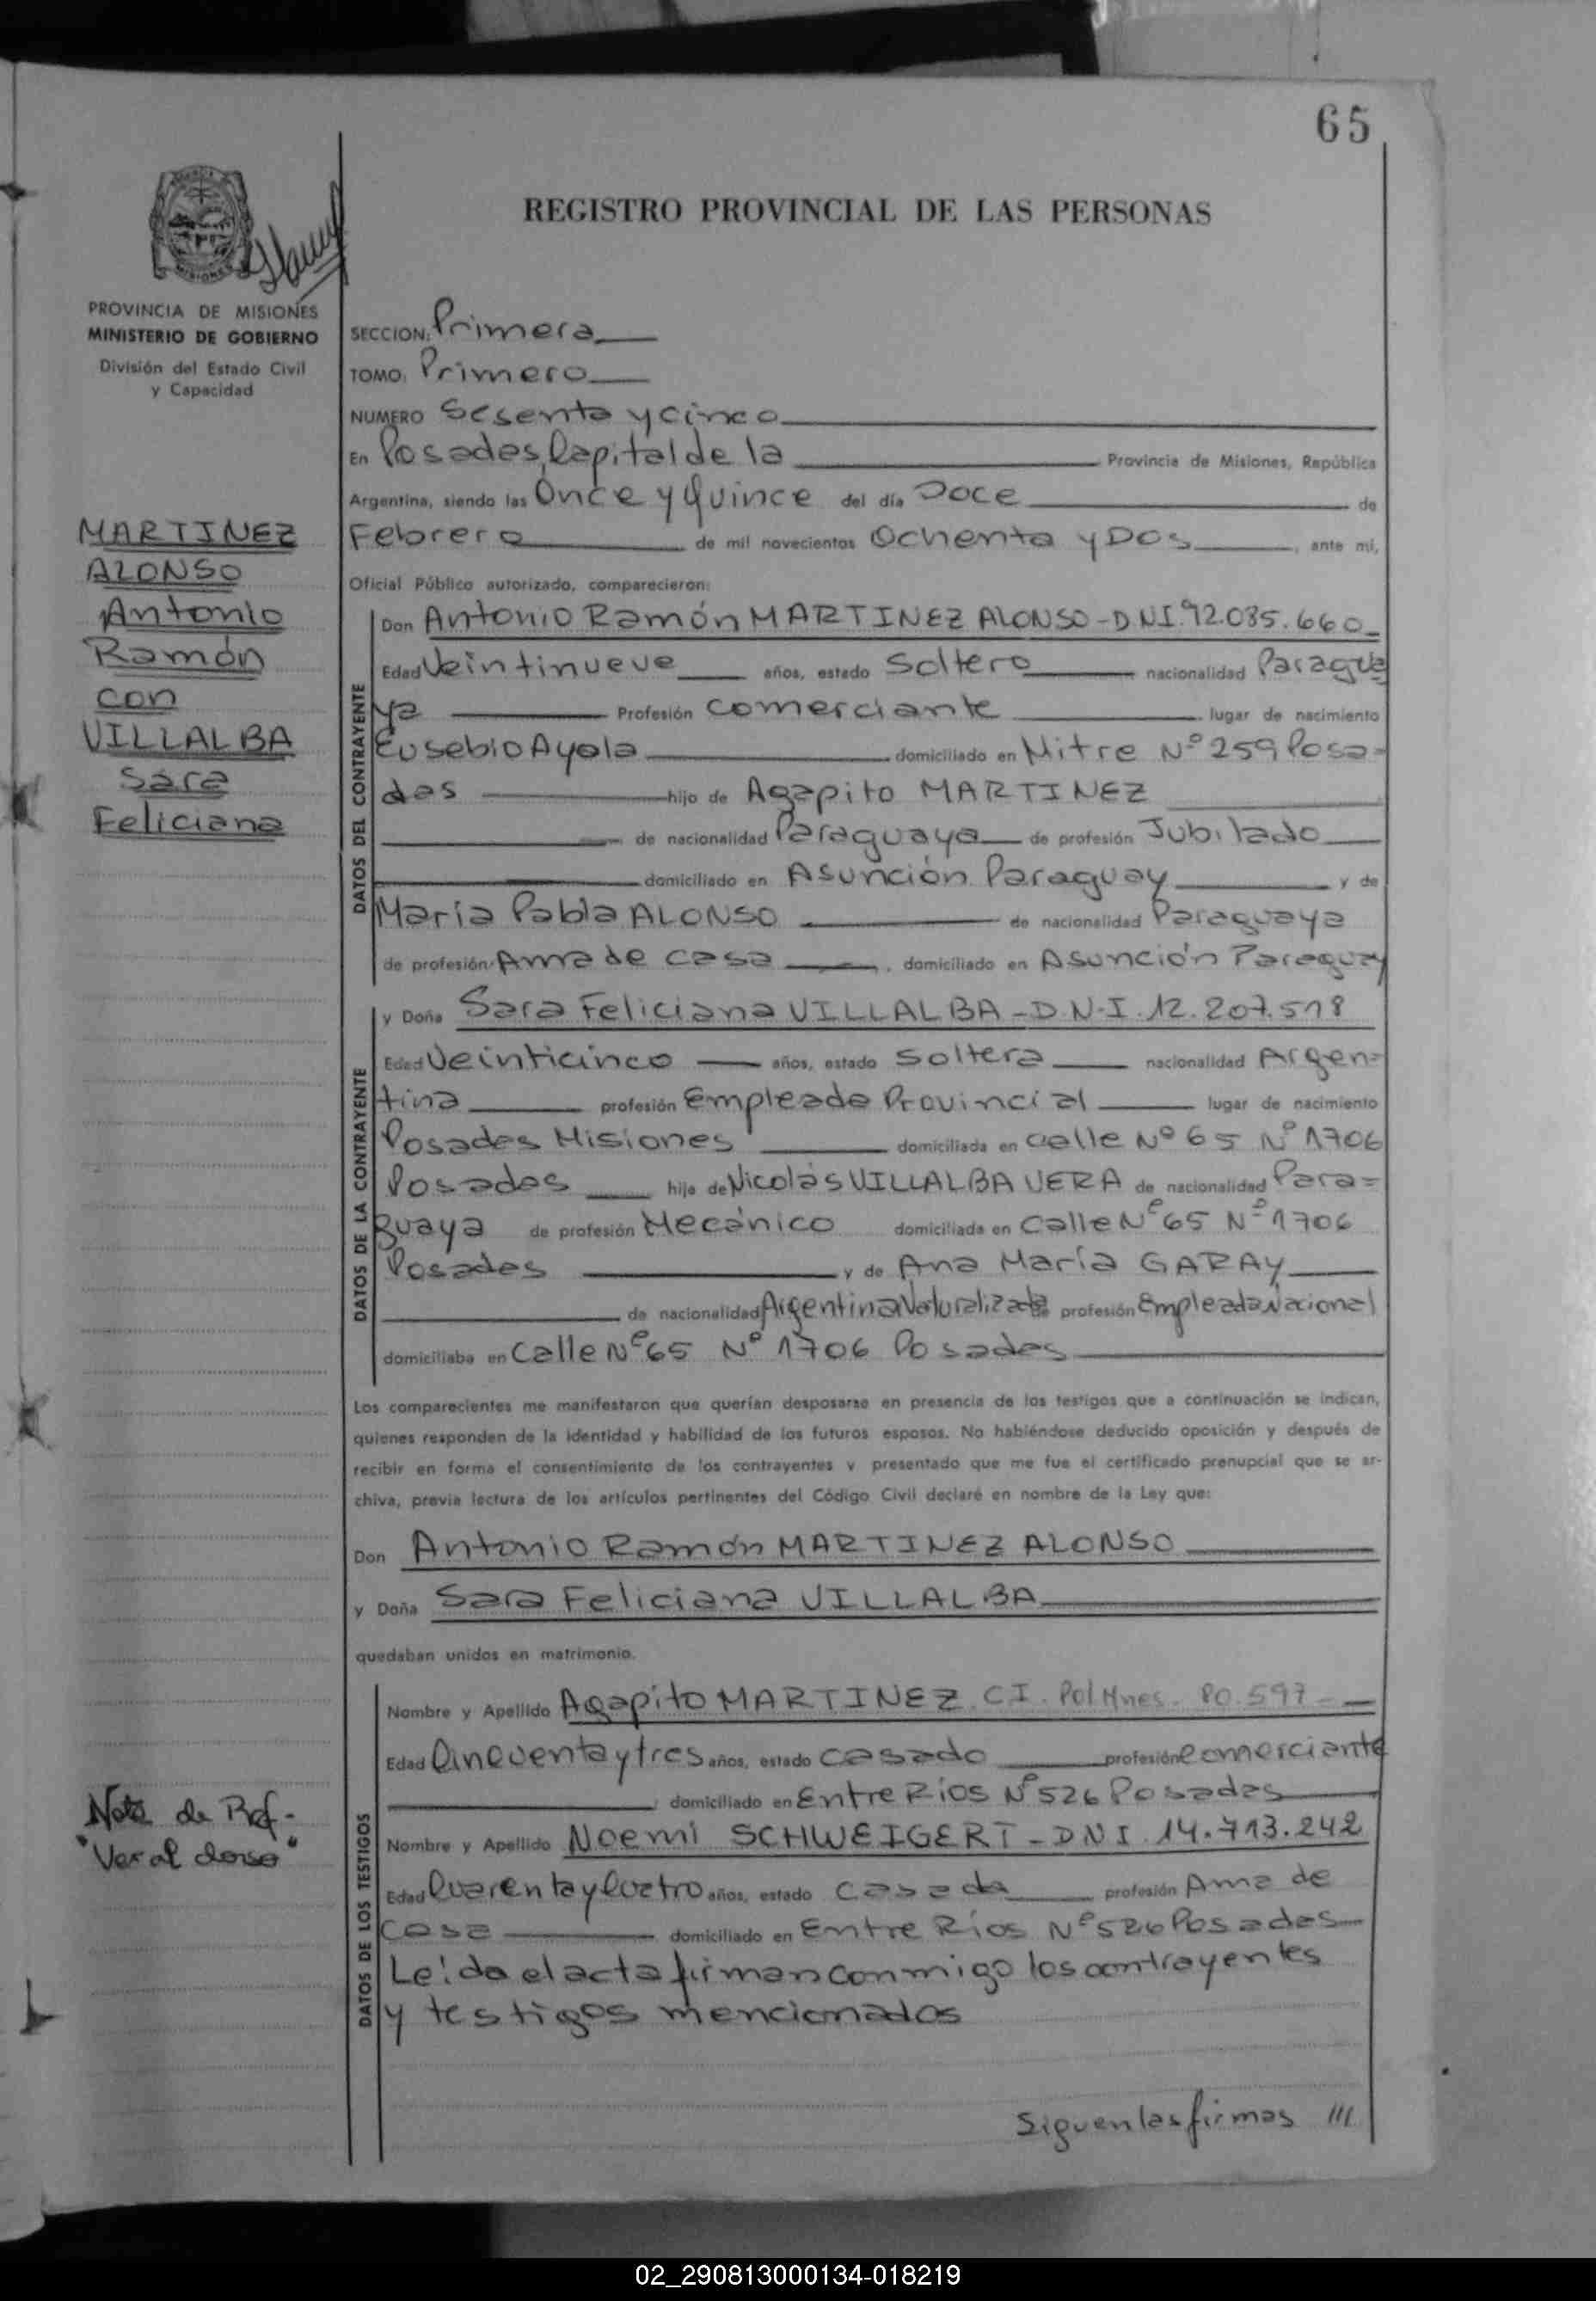 65
REGISTRO PROVINCIAL DE LAS PERSONAS
MISIONES
PROVINCIA DE MISIONES
MINISTERIO DE GOBIERNO
División del Estado Civil
y Capacidad
MARTINEZ
ALONSO
Antonio
Ramón
con
VILLALBA
Sara
Feliciana
Nota de Ref-
"Ver al dorso"
SECCION: Primera
TOMO: Primero
NUMERO Sesenta y cinco
En Posadas, Capital de la Provincia de Misiones, República
Argentina, siendo las Once y Quince del día Doce de
Febrero de mil novecientos Ochenta y Dos, ante mí,
Oficial Público autorizado, comparecieron:
DATOS DEL CONTRAYENTE
Don Antonio Ramón MARTINEZ ALONSO - DNI. 92.035.660
Edad Veintinueve años, estado Soltero nacionalidad Paragua
ya Profesión comerciante lugar de nacimiento
Eusebio Ayala domiciliado en Mitre Nº 259 Posa=
das hijo de Agapito MARTINEZ
de nacionalidad Paraguaya de profesión Jubilado
domiciliado en Asunción Paraguay y de
María Pabla ALONSO de nacionalidad Paraguaya
de profesión Ama de casa, domiciliado en Asunción Paraguay
DATOS DE LA CONTRAYENTE
y Doña Sara Feliciana VILLALBA - D.N.I. 12.207.518
Edad Veinticinco años, estado Soltera nacionalidad Argen=
tina profesión Empleada Provincial lugar de nacimiento
Posadas Misiones domiciliada en calle Nº 65 Nº 1706
Posadas hija de Nicolás VILLALBA VERA de nacionalidad Para=
guaya de profesión Mecánico domiciliada en Calle Nº 65 Nº 1706
Posadas y de Ana María GARAY
de nacionalidad Argentina Naturalizada de profesión Empleada Nacional
domiciliaba en Calle Nº 65 Nº 1706 Posadas
Los comparecientes me manifestaron que querían desposarse en presencia de los testigos que a continuación se indican,
quienes responden de la identidad y habilidad de los futuros esposos. No habiéndose deducido oposición y después de
recibir en forma el consentimiento de los contrayentes y presentado que me fue el certificado prenupcial que se ar-
chiva, previa lectura de los artículos pertinentes del Código Civil declaré en nombre de la Ley que:
Don Antonio Ramón MARTINEZ ALONSO
y Doña Sara Feliciana VILLALBA
quedaban unidos en matrimonio.
DATOS DE LOS TESTIGOS
Nombre y Apellido Agapito MARTINEZ. CI. Pol Mnes. 80.597
Edad Cincuenta y tres años, estado casado profesión comerciante
domiciliado en Entre Ríos Nº 526 Posadas
Nombre y Apellido Noemi SCHWEIGERT - DNI. 14.713.242
Edad Cuarenta y Cuatro años, estado casada profesión Ama de
casa domiciliado en Entre Ríos Nº 526 Posadas
Leída el acta firman conmigo los contrayentes
y testigos mencionados
Siguen las firmas ///
02_290813000134-018219